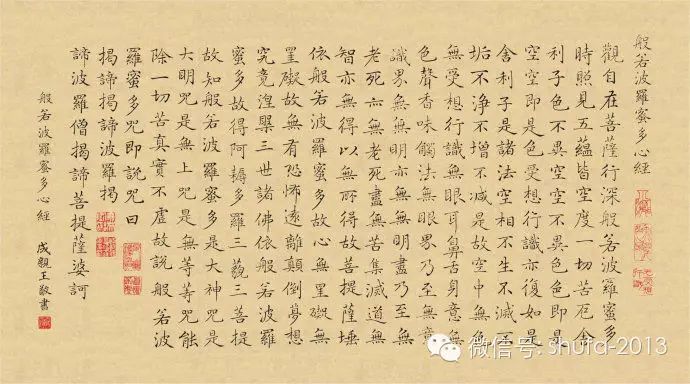 般若波羅蜜多心經
觀自在菩薩行深般若波羅蜜多
時照見五蘊皆空度一切苦厄舍
利子色不異空空不異色色即是
空空即是色受想行識亦復如是
舍利子是諸法空相不生不滅不
垢不淨不增不減是故空中無色
無受想行識無眼耳鼻舌身意無
色聲香味觸法無眼界乃至無意
識界無無明亦無無明盡乃至無
老死亦無老死盡無苦集滅道無
智亦無得以無所得故菩提薩埵
依般若波羅蜜多故心無罣礙無
罣礙故無有恐怖遠離顛倒夢想
究竟涅槃三世諸佛依般若波羅
蜜多故得阿耨多羅三藐三菩提
故知般若波羅蜜多是大神咒是
大明咒是無上咒是無等等咒能
除一切苦真實不虛故說般若波
羅蜜多咒即說咒曰
揭諦揭諦波羅揭
諦波羅僧揭諦菩提薩婆訶
般若波羅蜜多心經 成親王敬書
微信号: shufa-2013